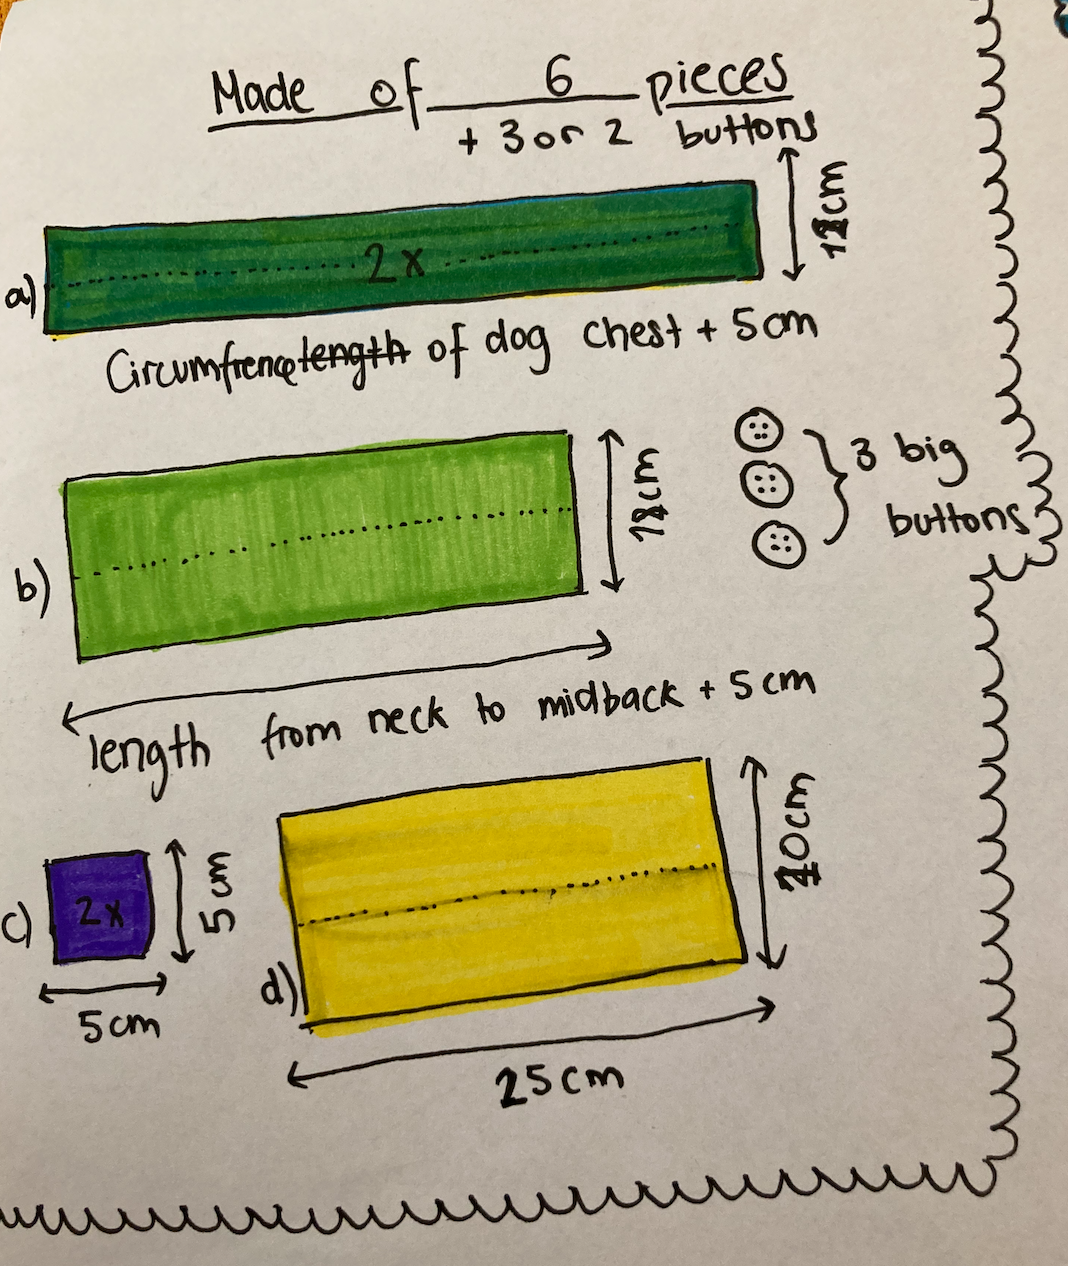 Made of 6 pieces
+ 3 or 2 buttons
a)
2x
Circumfrence length of dog chest + 5cm
b)
3 big
buttons
length from neck to midback + 5cm
c)
2x
5cm
5cm
d)
20cm
25cm